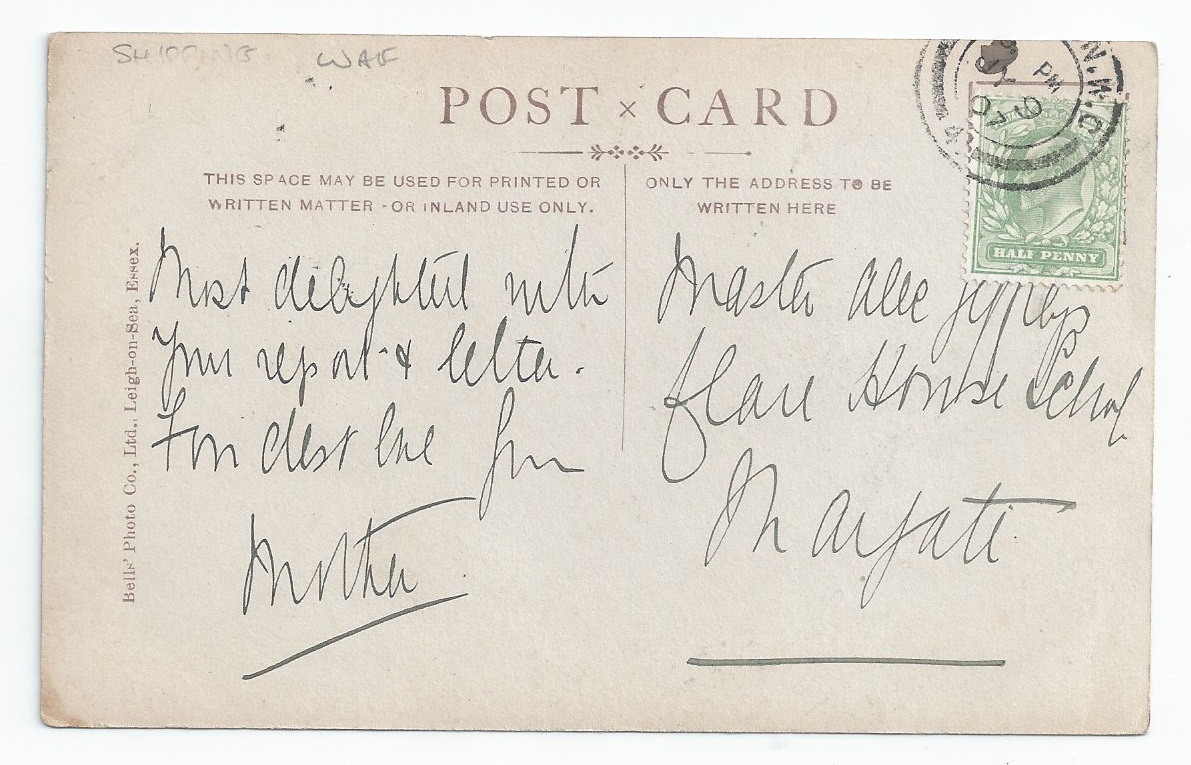 SHIPPING WAF
POST × CARD
THIS SPACE MAY BE USED FOR PRINTED OR
WRITTEN MATTER - OR INLAND USE ONLY.
ONLY THE ADDRESS TO BE
WRITTEN HERE
Bells' Photo Co., Ltd., Leigh-on-Sea, Essex.
Most delighted with
your report & letter.
Fondest love from
Mother
Master Alec
House School
Margate
N.W.C
PM
JY 9
07
HALF PENNY